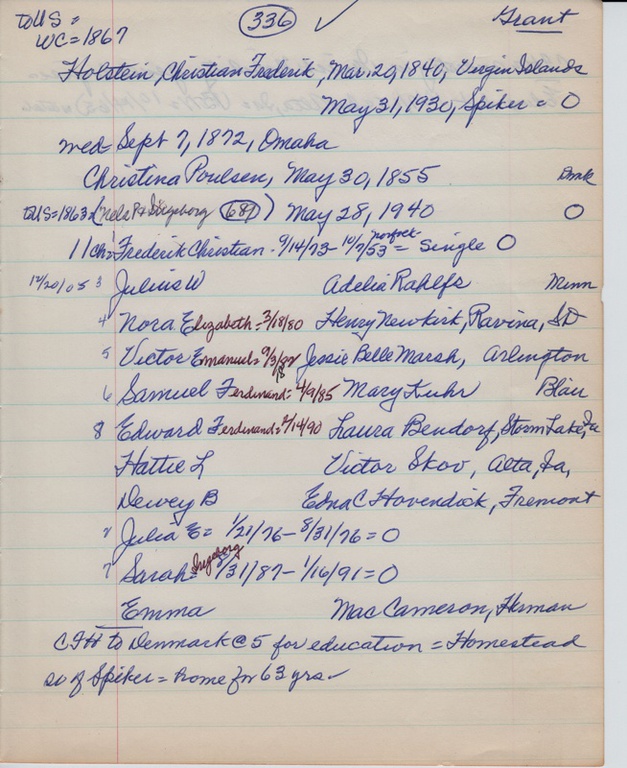 to US =
WC = 1867
336 ✓
Grant
Holstein, Christian Frederik, Mar. 20, 1840, Virgin Islands
May 31, 1930, Spiker = O
wed Sept 7, 1872, Omaha
Christina Poulsen, May 30, 1855 Dmk
to US = 1863 = (Nels P + Ingeborg 687) May 28, 1940 O
11 ch = 1 Frederik Christian = 9/14/73 - 10/7/53 = Norfolk Single O
12/20/05 3 Julius W Adelia Rahlfs Minn
4 Nora Elizabeth = 3/18/80 Henry Newkirk, Ravina, SD
5 Victor Emanuel = 9/3/82 Jessie Belle Marsh, Arlington
6 Samuel Ferdinand = 4/9/85 Mary Kuhr Blair
8 Edward Ferdinand = 2/14/90 Laura Bendorf, Storm Lake, Ia
Hattie L Victor Skov, Alta, Ia,
Dewey B Edna C Hovendick, Fremont
2 Julia E = 1/21/76 - 8/31/76 = O
7 Sarah Ingeborg = 8/31/87 - 1/16/91 = O
Emma Mac Cameron, Herman
CFH to Denmark @ 5 for education = Homestead
so of Spiker = home for 63 yrs. ✓